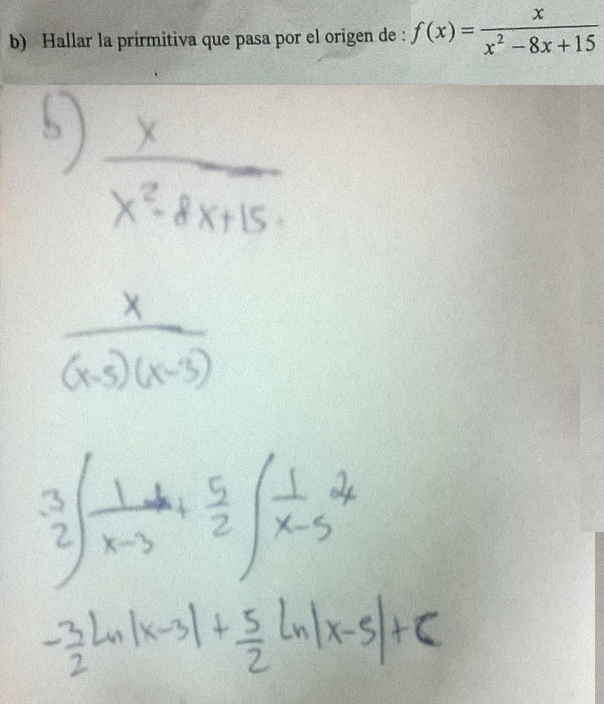 b) Hallar la prirmitiva que pasa por el origen de : f(x) = x / (x² - 8x + 15)
b) x / (x² - 8x + 15)
x / ((x-5)(x-3))
-3/2 ∫ 1/(x-3) dx + 5/2 ∫ 1/(x-5) dx
-3/2 Ln|x-3| + 5/2 Ln|x-5| + C